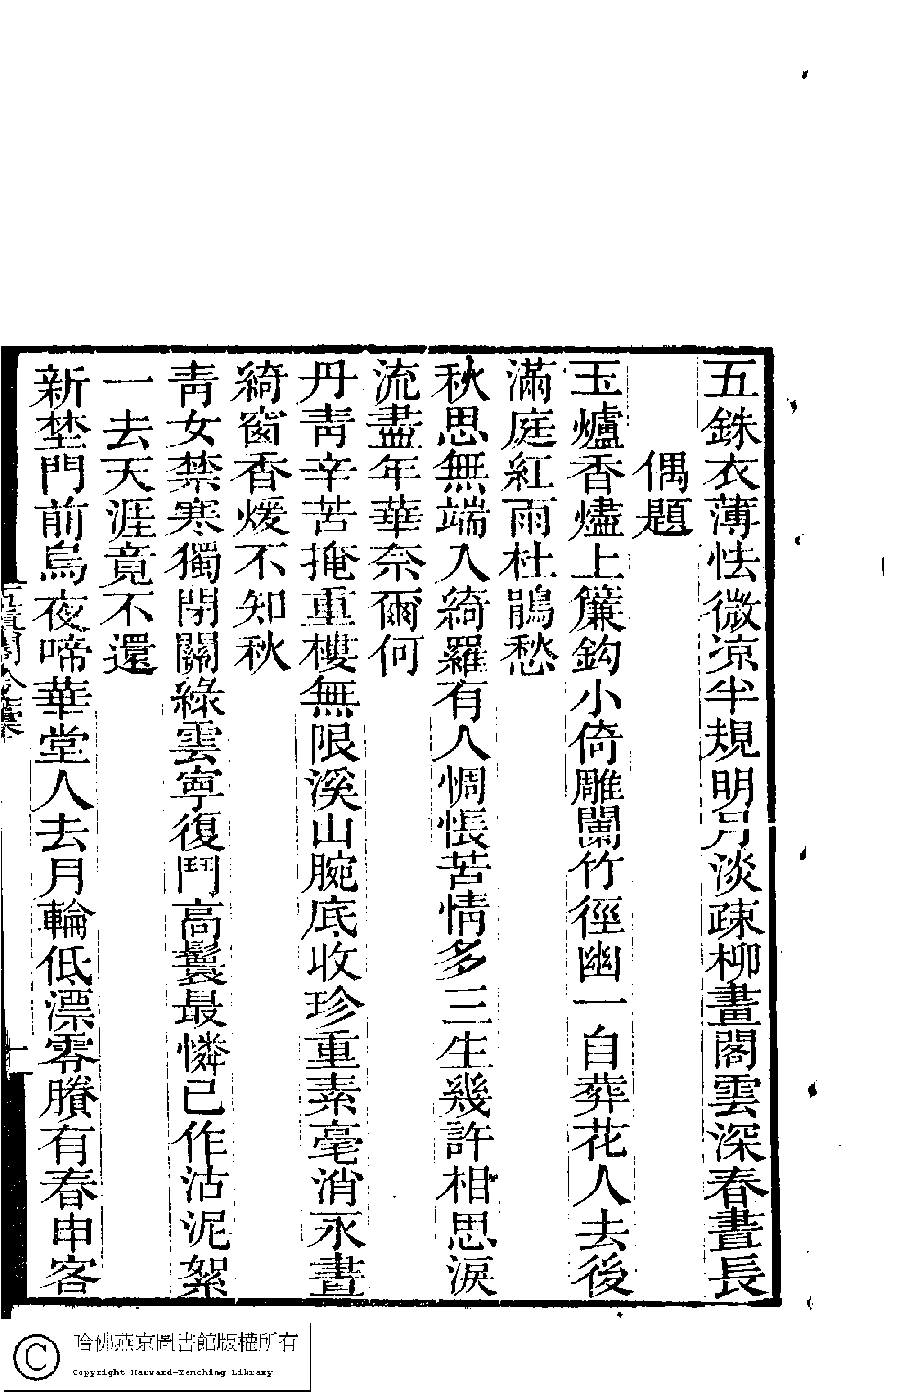 五銖衣薄怯微涼半規明月淡疎柳畫閣雲深春晝長
偶題
玉爐香燼上簾鈎小倚雕闌竹徑幽一自葬花人去後
滿庭紅雨杜鵑愁
秋思無端入綺羅有人惆悵苦情多三生幾許相思淚
流盡年華奈爾何
丹靑辛苦掩重樓無限溪山腕底收珍重素毫消永晝
綺窗香煖不知秋
靑女禁寒獨閉關綠雲寧復鬥高鬟最憐已作沾泥絮
一去天涯竟不還
新埜門前烏夜啼華堂人去月輪低漂零賸有春申客
十
哈佛燕京圖書館版權所有
Copyright Harvard-Yenching Library